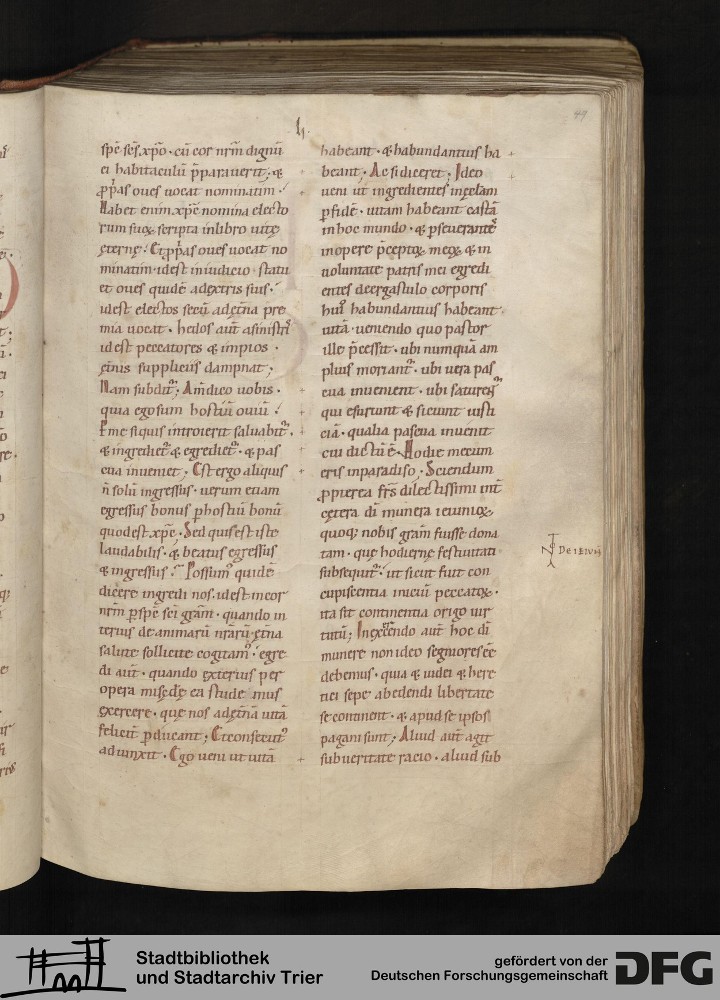 49
h.
spē sēs. xp̄o · cū cor nr̄m dignū
ei habitaculū p̄parauerit; &
p̱p̱as oues uocat nominatim ·
Habet enim xp̄c nomina electo
rum suoꝝ scripta inlibro uitę
ęternę · Et p̱p̱as oues uocat no
minatim · idest iniudicio · statu
et oues quidē adextris suis ·
idest electos secū adęt̄na pre
mia uocat · hedos aut̄ asinistr̄
idest peccatores & impios ·
ęt̄nis suppliciis dampnat;
Nam subdit᷒; Am̄ dico uobis ·
quia ego sum hostiū ouiū ·
P me siquis introierit saluabit᷒ ·
& ingrediet᷒ & egrediet᷒ · & pas
cua inueniet; Est ergo aliquis
n̄ solū ingressus · uerum etiam
egressus bonus p hostiū bonū
quodest xp̄c · Sed quis est iste
laudabilis · & beatus egressus
& ingressus · Possum᷒ quidē
dicere ingredi nos · idest incor
nr̄m p spē sc̄i grām · quando in
terius de animarū nr̄arū ęt̄na
salute sollicite cogitam᷒ · egre
di aut̄ · quando exterius per
opera mis̄c̄dię ea stude mus
exercere · que nos adęt̄nā uitā
feliciť p̱ducant; Et consecut᷒
adiunxit · Ego ueni ut uitā
habeant · & habundantius ha
beant · Ac si diceret; Ideo
ueni ut ingredientes inęcl̄am
p fidē · uitam habeant castā
in hoc mundo · & p̱seuerantē
in opere p̄ceptoꝝ meoꝝ & in
uoluntate patris mei egredi
entes deergastulo corporis
hui᷒ habundantius habeant
uitā · ueniendo quo pastor
ille p̄cessit · ubi numquā am
plius moriant᷒ · ubi uera pas
cua inuenient · ubi satureꝝ
qui esurunt & siciunt iusti
ciā · qualia pascua inuenit
cui dictū ē · Hodie mecum
eris inparadiso · Sciendum
p̱pterea fr̄s dilectissimi int̄
cętera di munera ieiunioꝝ
quoq; nobis grām fuisse dona
tam · que hodiernę festiuitati
subsequit᷒ · ut sicut fuit con
cupiscentia iniciū peccatoꝝ ·
ita sit continentia origo uir
tutū; In exercendo aut̄ hoc di
munere non ideo segniores ēē
debemus · quia & iudei & here
tici sepe abedendi libertate
se continent · & apud se ipsos
pagani sunt; Aliud aut̄ agit
sub ueritate racio · aliud sub
DE IEIVN̄
Stadtbibliothek
und Stadtarchiv Trier
gefördert von der
Deutschen Forschungsgemeinschaft
DFG